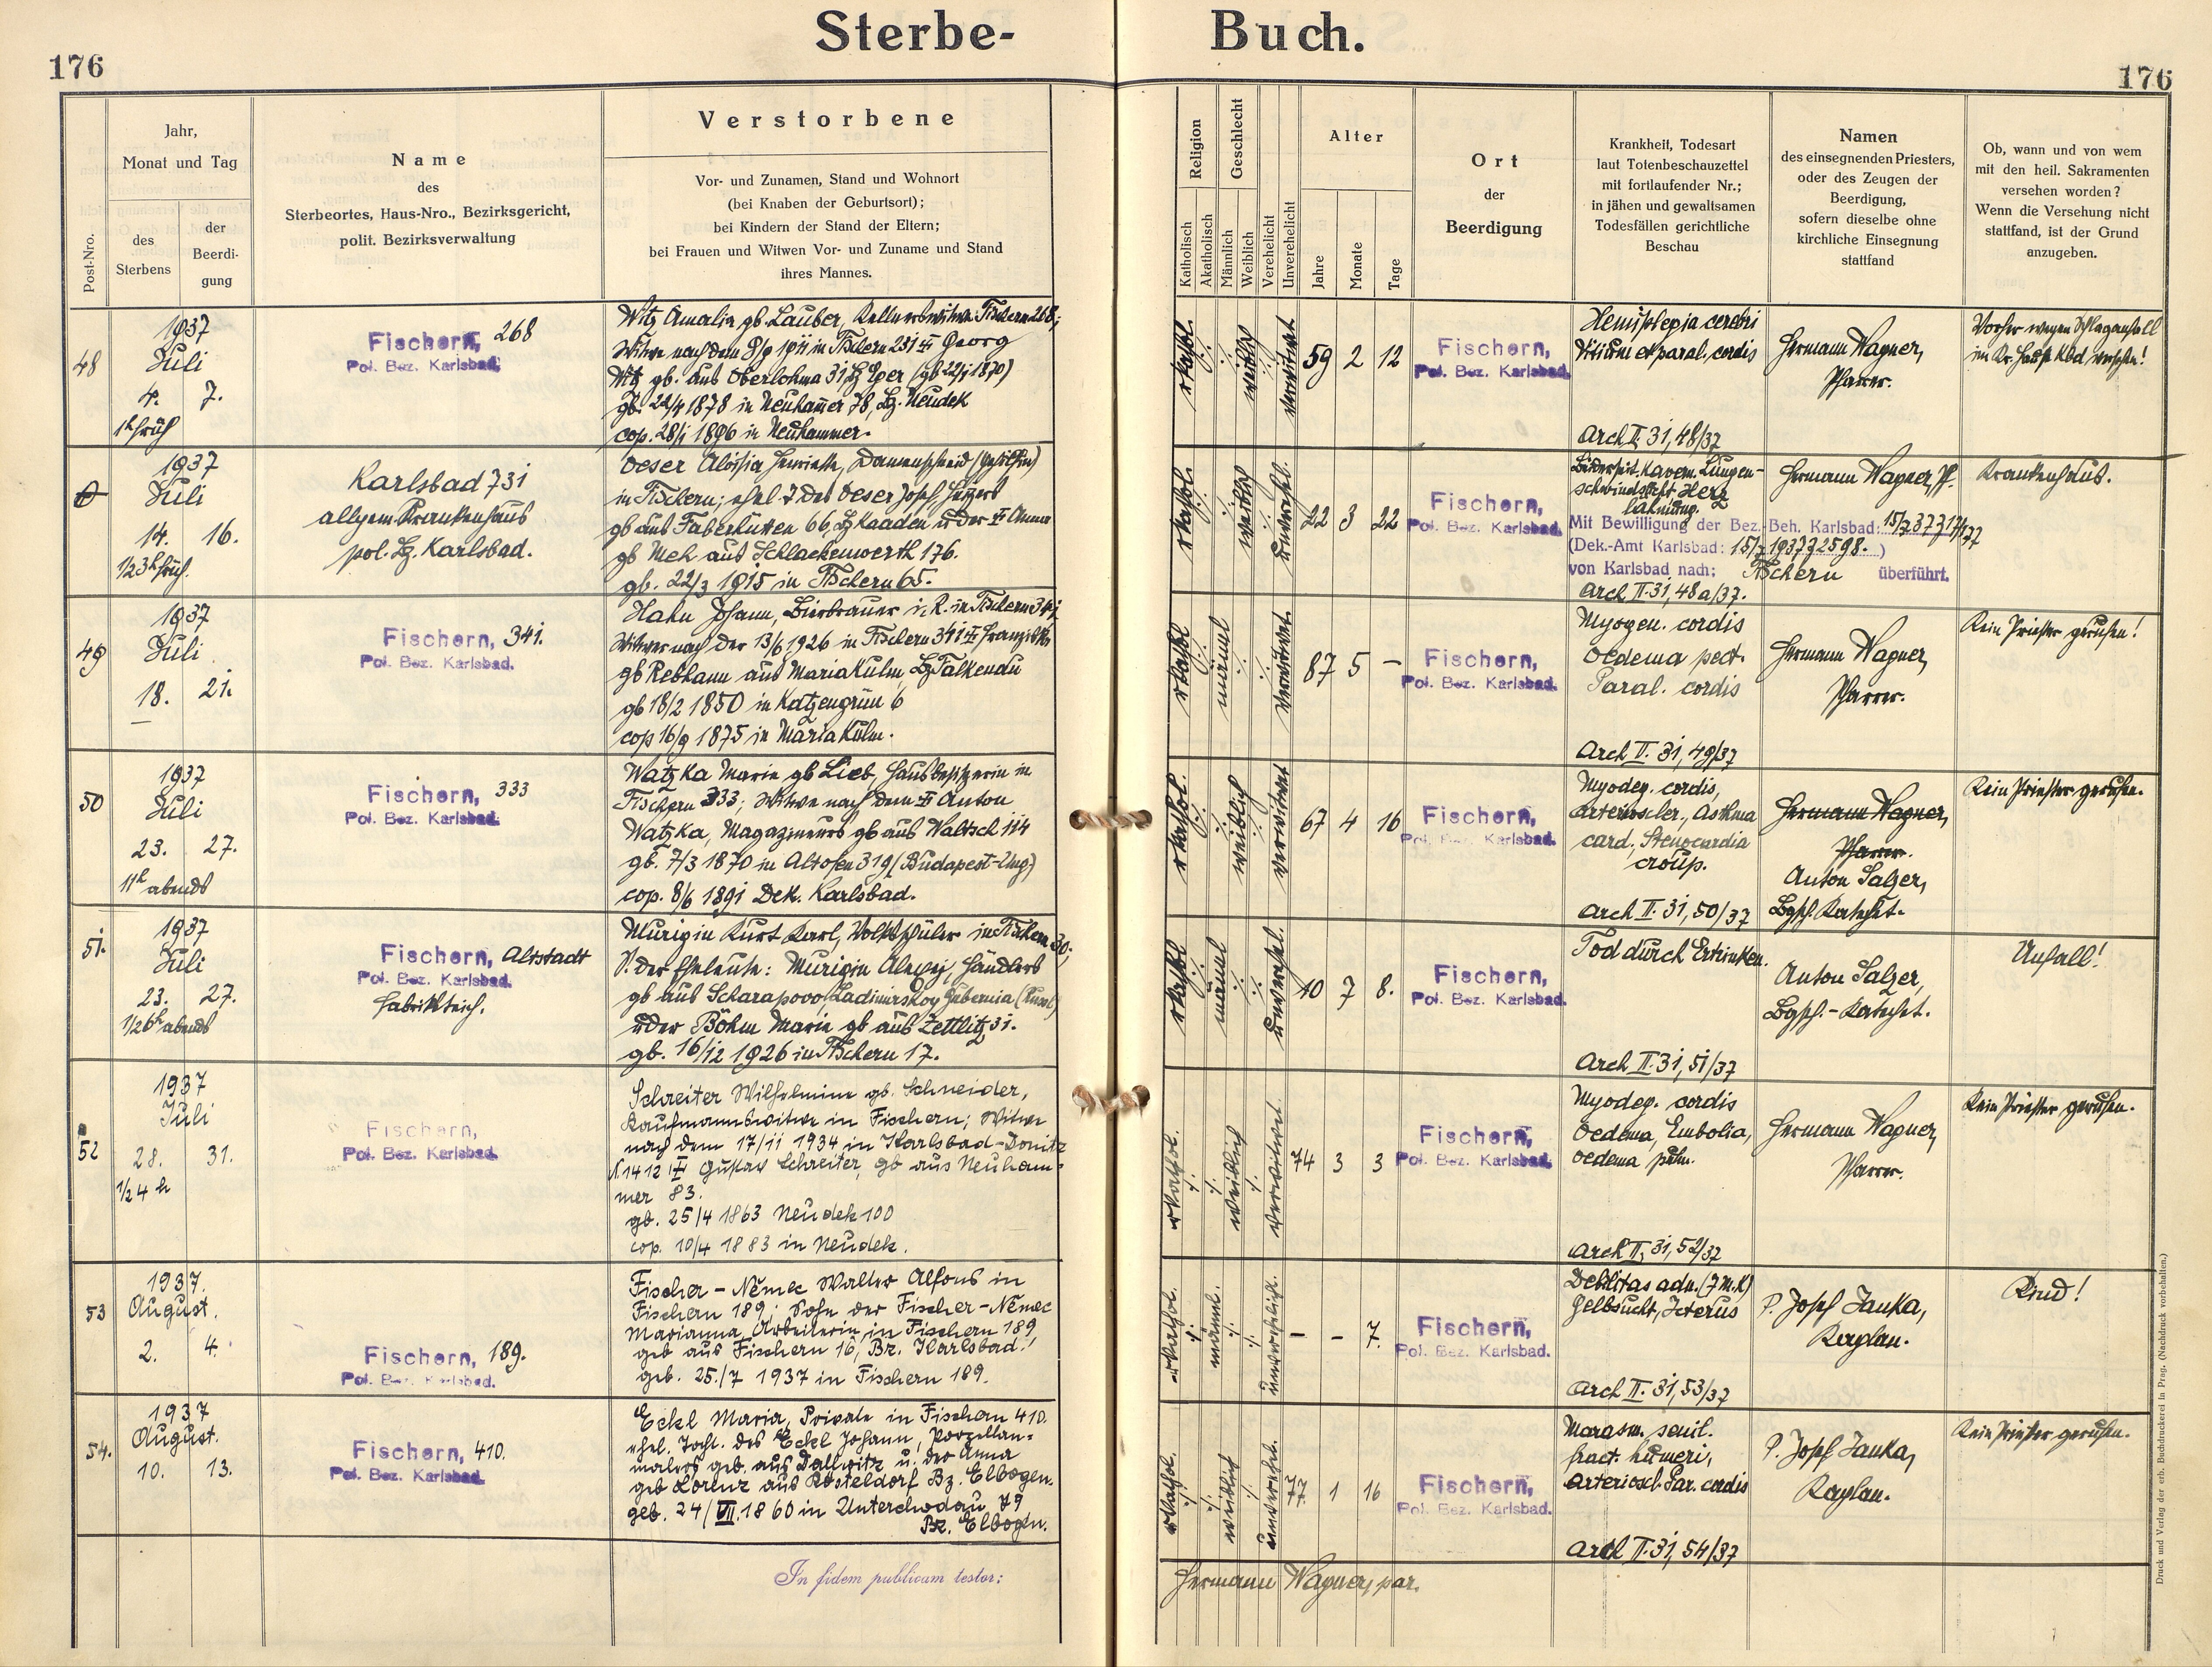 Sterbe- Buch.
176
176
Post-Nro.
Jahr,
Monat und Tag
des
Sterbens
der
Beerdi-
gung
Name
des
Sterbeortes, Haus-Nro., Bezirksgericht,
polit. Bezirksverwaltung
Verstorbene
Vor- und Zunamen, Stand und Wohnort
(bei Knaben der Geburtsort);
bei Kindern der Stand der Eltern;
bei Frauen und Witwen Vor- und Zuname und Stand
ihres Mannes.
Religion
Katholisch
Akatholisch
Geschlecht
Männlich
Weiblich
Verehelicht
Unverehelicht
Alter
Jahre
Monate
Tage
Ort
der
Beerdigung
Krankheit, Todesart
laut Totenbeschauzettel
mit fortlaufender Nr.;
in jähen und gewaltsamen
Todesfällen gerichtliche
Beschau
Namen
des einsegnenden Priesters,
oder des Zeugen der
Beerdigung,
sofern dieselbe ohne
kirchliche Einsegnung
stattfand
Ob, wann und von wem
mit den heil. Sakramenten
versehen worden?
Wenn die Versehung nicht
stattfand, ist der Grund
anzugeben.
48
1937
Juli
4. 7.
1h früh
Fischern, 268
Pol. Bez. Karlsbad.
Witz Amalia gb. Lauber, Kellnerswitwe Fischern 268;
Witwe nach dem 8/9 1911 in Fischern 231 Georg
Witz gb. aus Oberlohma 31 Bz Eger (gb 22/1 1870)
gb. 22/4 1878 in Neuhammer 78, Bz. Neudek
cop. 28/1 1896 in Neuhammer.
rkathol.
weiblich
verwitwet
59 2 12
Fischern,
Pol. Bez. Karlsbad.
Hemiplegia cerebri
Vitium et paral. cordis
Arch II, 31, 48/37
Hermann Wagner,
Pfarrer.
Vorher wegen Schlaganfall
im Kr. Haus Kbd. versehen!
1937
Juli
14. 16.
1/2 3h früh.
Karlsbad 731
allgem. Krankenhaus
pol. Bz. Karlsbad.
Oeser Aloisia Henriette, Damenschneid (Gehilfin)
in Fischern; ehel. T. des Oeser Josef, Heizers
gb aus Faberhütten 66, Bz Kaaden u der Anna
gb Meh aus Schlackenwerth 176.
gb. 22/3 1915 in Fischern 65.
rkathol.
weiblich
unverehel.
22 3 22
Fischern,
Pol. Bez. Karlsbad.
Beiderseit. kavern. Lungen-
schwindsucht Herz
lähmung.
Mit Bewilligung der Bez.-Beh. Karlsbad:
(Dek.-Amt Karlsbad: )
von Karlsbad nach; Fischern überführt.
Arch II. 31, 48a/37.
Hermann Wagner, Pf.
Krankenhaus.
49
1937
Juli
18. 21.
Fischern, 341.
Pol. Bez. Karlsbad.
Hahn Johann, Bierbrauer i. R. in Fischern 341,
Witwer nach der 13/6 1926 in Fischern 341 Franziska
gb Rebhann aus Maria Kulm Bz Falkenau
gb 18/2 1850 in Katzengrün 6
cop 16/9 1875 in Maria Kulm.
rkathol
männl
verwitwet.
87 5 -
Fischern,
Pol. Bez. Karlsbad.
Myogen. cordis
Oedema pect.
Paral. cordis
Arch II. 31, 49/37
Hermann Wagner,
Pfarrer.
Kein Priester gerufen!
50
1937
Juli
23. 27.
11h abends
Fischern, 333
Pol. Bez. Karlsbad.
Watzka Marie gb Lieb, Hausbesitzerin in
Fischern 333; Witwe nach dem Anton
Watzka, Magazineurs gb aus Waltsch 114
gb. 7/3 1870 in Altofen 319 (Budapest-Ung.)
cop. 8/6 1891 Dek. Karlsbad.
rkathol.
weiblich
verwitwet
67 4 16
Fischern,
Pol. Bez. Karlsbad.
Myodeg. cordis,
Arterioscler., Asthma
card., Stenocardia
croup.
Arch II. 31, 50/37
Hermann Wagner,
Pfarrer.
Anton Salzer,
Bgsch. Katechet.
Kein Priester gerufen.
51.
1937
Juli
23. 27.
1/2 6h abends
Fischern, Altstadt
Pol. Bez. Karlsbad.
Fabriksteich.
Murigin Kurt Karl, Volksschüler in Fischern 30;
S. der Eheleute: Murigin Alexej, Händlers
gb aus Scharapovo, Ladimirskoy Gubernia
u der Böhm Marie gb aus Zettlitz 31.
gb. 16/12 1926 in Fischern 17.
rkathol
männl
unverehel.
10 7 8.
Fischern,
Pol. Bez. Karlsbad.
Tod durch Ertrinken.
Arch II. 31, 51/37
Anton Salzer,
Bgsch.-Katechet.
Unfall!
52
1937
Juli
28. 31.
1/2 4 h
Fischern,
Pol. Bez. Karlsbad.
Schreiter Wilhelmine gb. Schneider,
Kaufmannswitwe in Fischern; Witwe
nach dem 17/11 1934 in Karlsbad-Donitz
N. 1412 Gustav Schreiter, gb aus Neuham-
mer 83.
gb. 25/4 1863 Neudek 100
cop. 10/4 1883 in Neudek.
rkathol.
weiblich
verwitwet
74 3 3
Fischern,
Pol. Bez. Karlsbad.
Myodeg. cordis
Oedema, Embolia,
oedema pulm.
Arch II, 31, 52/37
Hermann Wagner,
Pfarrer.
Kein Priester gerufen.
53
1937.
August.
2. 4.
Fischern, 189.
Pol. Bez. Karlsbad.
Fischer - Němec Walter Alfons in
Fischern 189; Sohn der Fischer-Němec
Marianna, Arbeiterin in Fischern 189
geb aus Fischern 16, Bz. Karlsbad!
geb. 25./7 1937 in Fischern 189.
rkathol.
männl.
unverehelicht.
- - 7.
Fischern,
Pol. Bez. Karlsbad.
Debilitas adn. (7 M. K)
Gelbsucht, Icterus
Arch II. 31, 53/37
P. Josef Janka,
Kaplan.
Kind!
54.
1937
August.
10. 13.
Fischern, 410.
Pol. Bez. Karlsbad.
Eckl Maria, Private in Fischern 410.
ehel. Tocht. des Eckl Johann, Porzellan-
malers geb. aus Dallwitz u. der Anna
geb Lorenz aus Rösteldorf Bz. Elbogen.
geb. 24/VI. 1860 in Unterchodau 79
Bz. Elbogen.
rkathol.
weiblich
unverehel.
77 1 16
Fischern,
Pol. Bez. Karlsbad.
Marasm. senil.
fract. humeri,
Arterioscl. Par. cordis
Arch II. 31, 54/37
P. Josef Janka,
Kaplan.
Kein Priester gerufen.
In fidem publicam testor:
Hermann Wagner, par.
Druck und Verlag der erb. Buchdruckerei in Prag. (Nachdruck vorbehalten.)